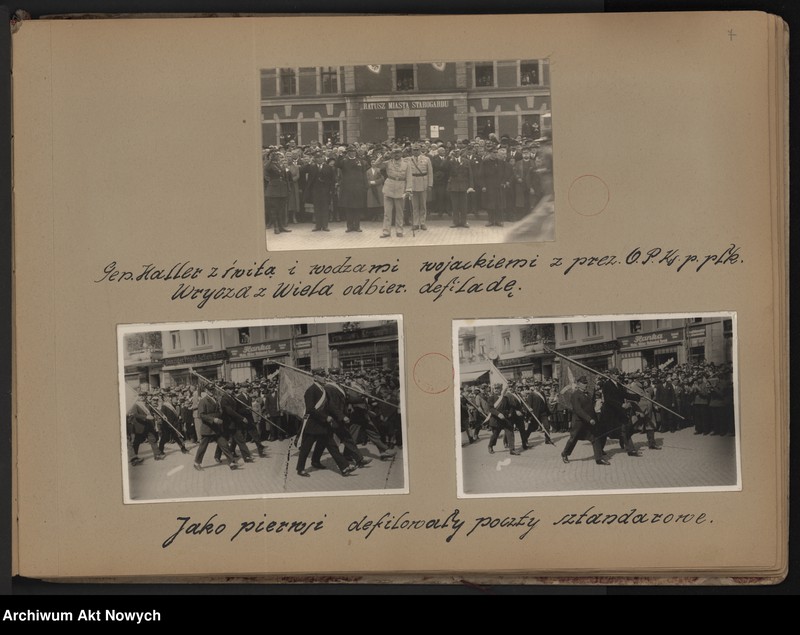 7
RATUSZ MIASTA STAROGARDU
Gen. Haller z świtą i wodzami wojackiemi z prez. O.P. Ks. p. płk.
Wrycza z Wiela odbier. defiladę.
Jako pierwsi defilowały poczty sztandarowe.
Archiwum Akt Nowych